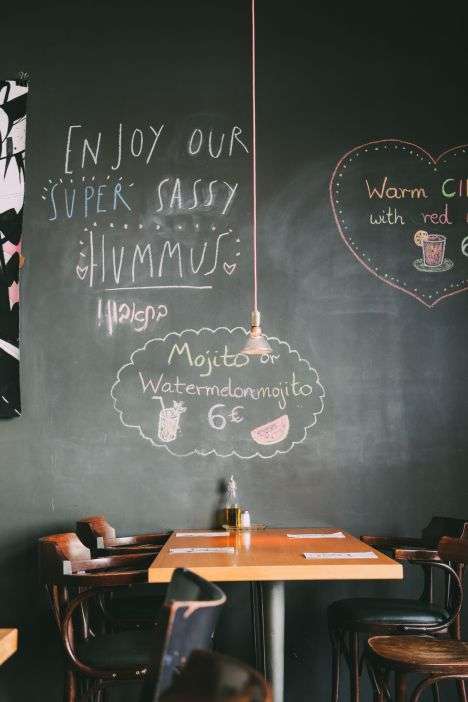 ENJOY OUR
SUPER SASSY
HUMMUS
בתאבון!
Mojito or
Watermelonmojito
6€
Warm CI
with red
6